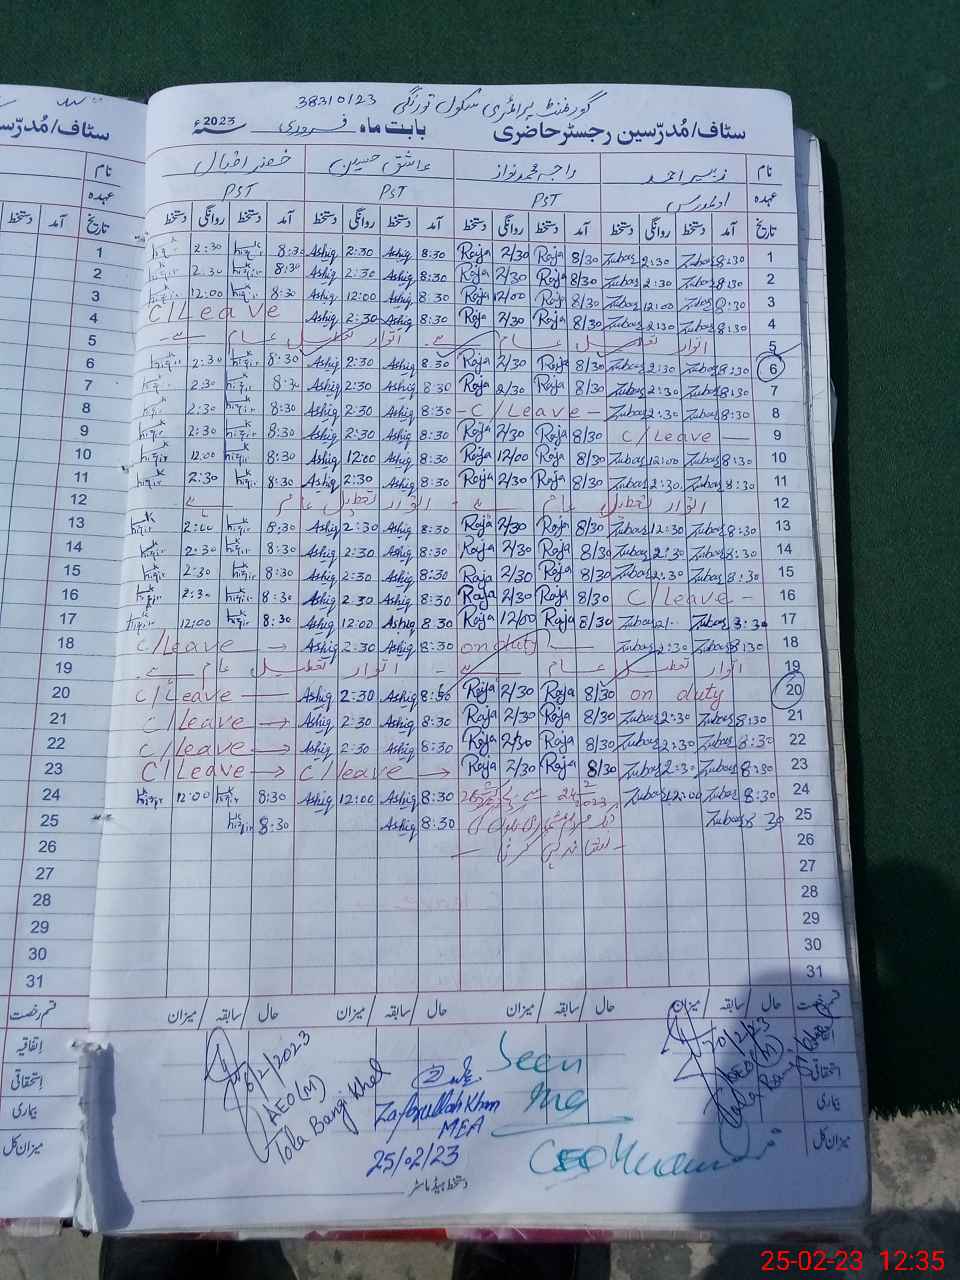 گورنمنٹ پرائمری سکول تورنگی 38310123
سٹاف/مُدرّسین رجسٹر حاضری بابت ماہ فروری 2023ء
نام زبیر احمد راجہ محمد نواز عاشق حسین خضر اقبال
عہدہ PST PST PST
تاریخ آمد دستخط روانگی دستخط آمد دستخط روانگی دستخط آمد دستخط روانگی دستخط آمد دستخط روانگی دستخط
2:30 8:30 Ashiq 2:30 Ashiq 8:30 Raja 2/30 Raja 8/30 Zubar 2:30 Zubar 8:30 1
2:30 8:30 Ashiq 2:30 Ashiq 8:30 Raja 2/30 Raja 8/30 Zubar 2:30 Zubar 8:30 2
12:00 8:30 Ashiq 12:00 Ashiq 8:30 Raja 12/00 Raja 8/30 Zubar 12:00 Zubar 8:30 3
C/Leave Ashiq 2:30 Ashiq 8:30 Raja 2/30 Raja 8/30 Zubar 2:30 Zubar 8:30 4
5 اتوار تعطیل عام ہے۔ اتوار تعطیل عام ہے۔
2:30 8:30 Ashiq 2:30 Ashiq 8:30 Raja 2/30 Raja 8/30 Zubar 2:30 Zubar 8:30 6
2:30 8:30 Ashiq 2:30 Ashiq 8:30 Raja 2/30 Raja 8/30 Zubar 2:30 Zubar 8:30 7
2:30 8:30 Ashiq 2:30 Ashiq 8:30 - C/Leave - Zubar 2:30 Zubar 8:30 8
2:30 8:30 Ashiq 2:30 Ashiq 8:30 Raja 2/30 Raja 8/30 C/Leave — 9
12:00 8:30 Ashiq 12:00 Ashiq 8:30 Raja 12/00 Raja 8/30 Zubar 12:00 Zubar 8:30 10
2:30 8:30 Ashiq 2:30 Ashiq 8:30 Raja 2/30 Raja 8/30 Zubar 2:30 Zubar 8:30 11
12 اتوار تعطیل عام ہے - اتوار تعطیل عام ہے
2:00 8:30 Ashiq 2:30 Ashiq 8:30 Raja 2/30 Raja 8/30 Zubar 12:30 Zubar 8:30 13
2:30 8:30 Ashiq 2:30 Ashiq 8:30 Raja 2/30 Raja 8/30 Zubar 2:30 Zubar 8:30 14
2:30 8:30 Ashiq 2:30 Ashiq 8:30 Raja 2/30 Raja 8/30 Zubar 2:30 Zubar 8:30 15
2:30 8:30 Ashiq 2:30 Ashiq 8:30 Raja 2/30 Raja 8/30 C/Leave - 16
12:00 8:30 Ashiq 12:00 Ashiq 8:30 Raja 12/00 Raja 8/30 Zubar Zubar 8:30 17
C/Leave → Ashiq 2:30 Ashiq 8:30 on duty — Zubar 2:30 Zubar 8:30 18
19 اتوار تعطیل عام ہے اتوار تعطیل عام ہے۔
C/Leave — Ashiq 2:30 Ashiq 8:30 Raja 2/30 Raja 8/30 on duty 20
C/Leave → Ashiq 2:30 Ashiq 8:30 Raja 2/30 Raja 8/30 Zubar 2:30 Zubar 8:30 21
C/Leave → Ashiq 2:30 Ashiq 8:30 Raja 2/30 Raja 8/30 Zubar 2:30 Zubar 8:30 22
C/Leave → C/leave → Raja 2/30 Raja 8/30 Zubar 2:30 Zubar 8:30 23
12:00 8:30 Ashiq 12:00 Ashiq 8:30 Zubar 12:00 Zubar 8:30 24
8:30 Ashiq 8:30 Zubar 8:30 25
26
27
28
29
30
31
قسم رخصت حال / سابقہ / میزان حال / سابقہ / میزان حال / سابقہ / میزان حال / سابقہ / میزان
اتفاقیہ
استحقاقی
بیماری
میزان کل
6/2/2023
AEO(M)
Tola Bangi Khel
Zafarullah Khan
MEA
25/02/23
Seen
CEO
20/2/23
AEO(M)
دستخط ہیڈ ماسٹر
سٹاف/مُدرّسین
نام
عہدہ
تاریخ آمد دستخط
1
2
3
4
5
6
7
8
9
10
11
12
13
14
15
16
17
18
19
20
21
22
23
24
25
26
27
28
29
30
31
قسم رخصت
اتفاقیہ
استحقاقی
بیماری
میزان کل
25-02-23 12:35